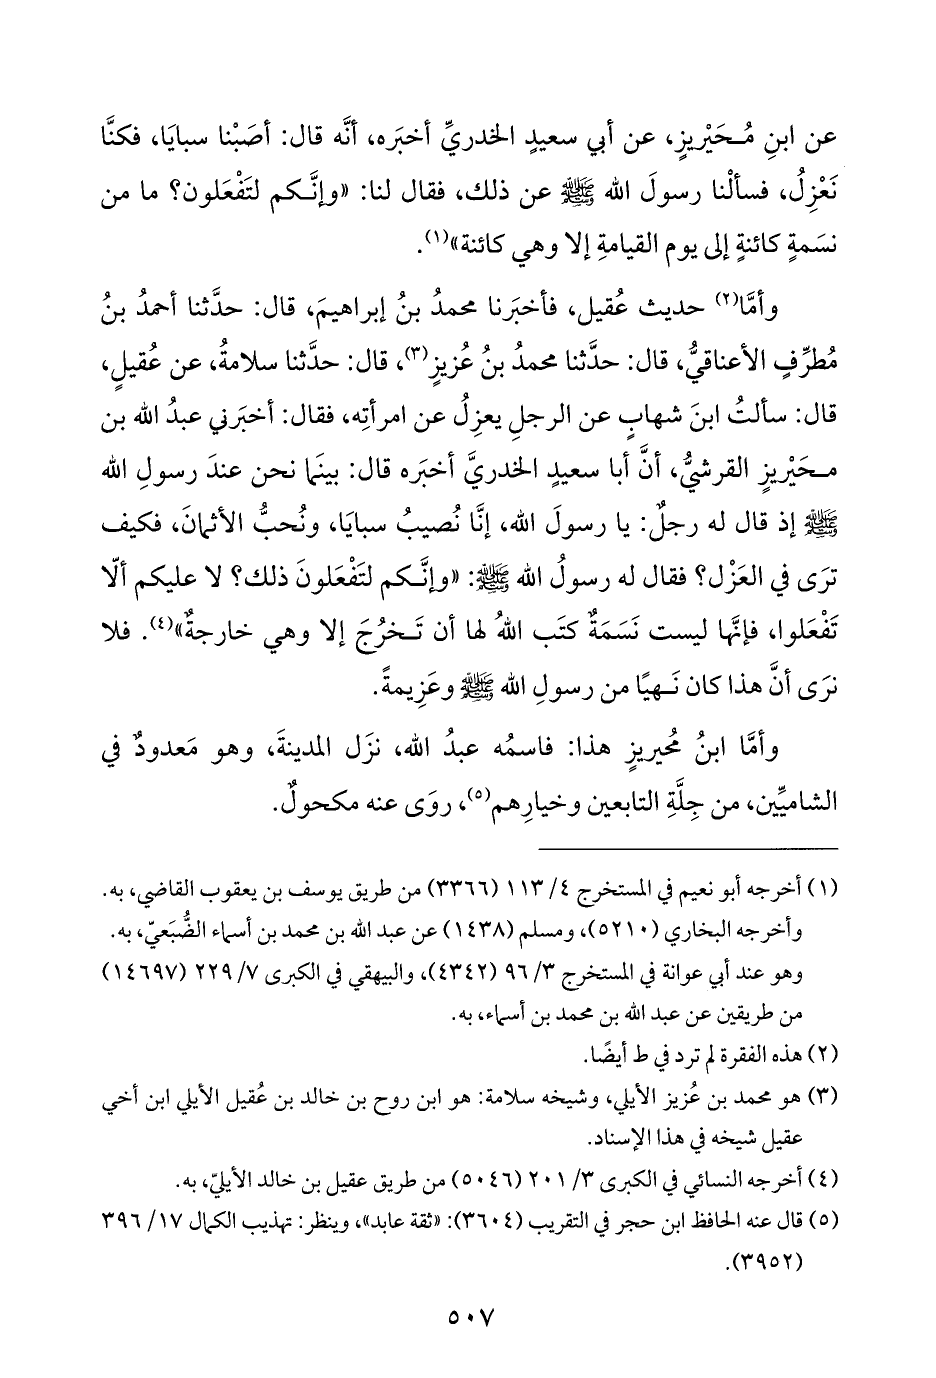 عن ابنِ مُـحَيْريزٍ، عن أبي سعيدٍ الخدريِّ أخبَره، أنَّه قال: أصَبْنا سبايَا، فكنَّا
نَعْزِلُ، فسألْنا رسولَ الله ﷺ عن ذلك، فقال لنا: «وإنَّـكم لتَفْعَلون؟ ما من
نسَمةٍ كائنةٍ إلى يوم القيامةِ إلا وهي كائنة»(١).
وأمَّا(٢) حديث عُقيل، فأخبَرنا محمدُ بنُ إبراهيمَ، قال: حدَّثنا أحمدُ بنُ
مُطرِّفٍ الأعناقيُّ، قال: حدَّثنا محمدُ بنُ عُزيزٍ(٣)، قال: حدَّثنا سلامةُ، عن عُقيلٍ،
قال: سألتُ ابنَ شهابٍ عن الرجلِ يعزِلُ عن امرأتِه، فقال: أخبَرني عبدُ الله بن
مـحَيْريزٍ القرشيُّ، أنَّ أبا سعيدٍ الخدريَّ أخبَره قال: بينَما نحن عندَ رسولِ الله
ﷺ إذ قال له رجلٌ: يا رسولَ الله، إنَّا نُصيبُ سبايَا، ونُحبُّ الأثمانَ، فكيف
ترَى في العَزْل؟ فقال له رسولُ الله ﷺ: «وإنَّـكم لتَفْعَلونَ ذلك؟ لا عليكم ألّا
تَفْعَلوا، فإنَّها ليست نَسَمَةٌ كتَب اللهُ لها أن تَـخرُجَ إلا وهي خارجةٌ»(٤). فلا
نرَى أنَّ هذا كان نَـهيًا من رسولِ الله ﷺ وعَزِيمةً.
وأمَّا ابنُ محيريزٍ هذا: فاسمُه عبدُ الله، نزَل المدينةَ، وهو مَعدودٌ في
الشاميِّين، من جِلَّةِ التابعين وخيارِهم(٥)، روَى عنه مكحولٌ.
(١) أخرجه أبو نعيم في المستخرج ٤/ ١١٣ (٣٣٦٦) من طريق يوسف بن يعقوب القاضي، به.
وأخرجه البخاري (٥٢١٠)، ومسلم (١٤٣٨) عن عبد الله بن محمد بن أسماء الضُّبَعيّ، به.
وهو عند أبي عوانة في المستخرج ٣/ ٩٦ (٤٣٤٢)، والبيهقي في الكبرى ٧/ ٢٢٩ (١٤٦٩٧)
من طريقين عن عبد الله بن محمد بن أسماء، به.
(٢) هذه الفقرة لم ترد في ط أيضًا.
(٣) هو محمد بن عُزيز الأيلي، وشيخه سلامة: هو ابن روح بن خالد بن عُقيل الأيلي ابن أخي
عقيل شيخه في هذا الإسناد.
(٤) أخرجه النسائي في الكبرى ٣/ ٢٠١ (٥٠٤٦) من طريق عقيل بن خالد الأيليّ، به.
(٥) قال عنه الحافظ ابن حجر في التقريب (٣٦٠٤): «ثقة عابد»، وينظر: تهذيب الكمال ١٧/ ٣٩٦
(٣٩٥٢).
٥٠٧